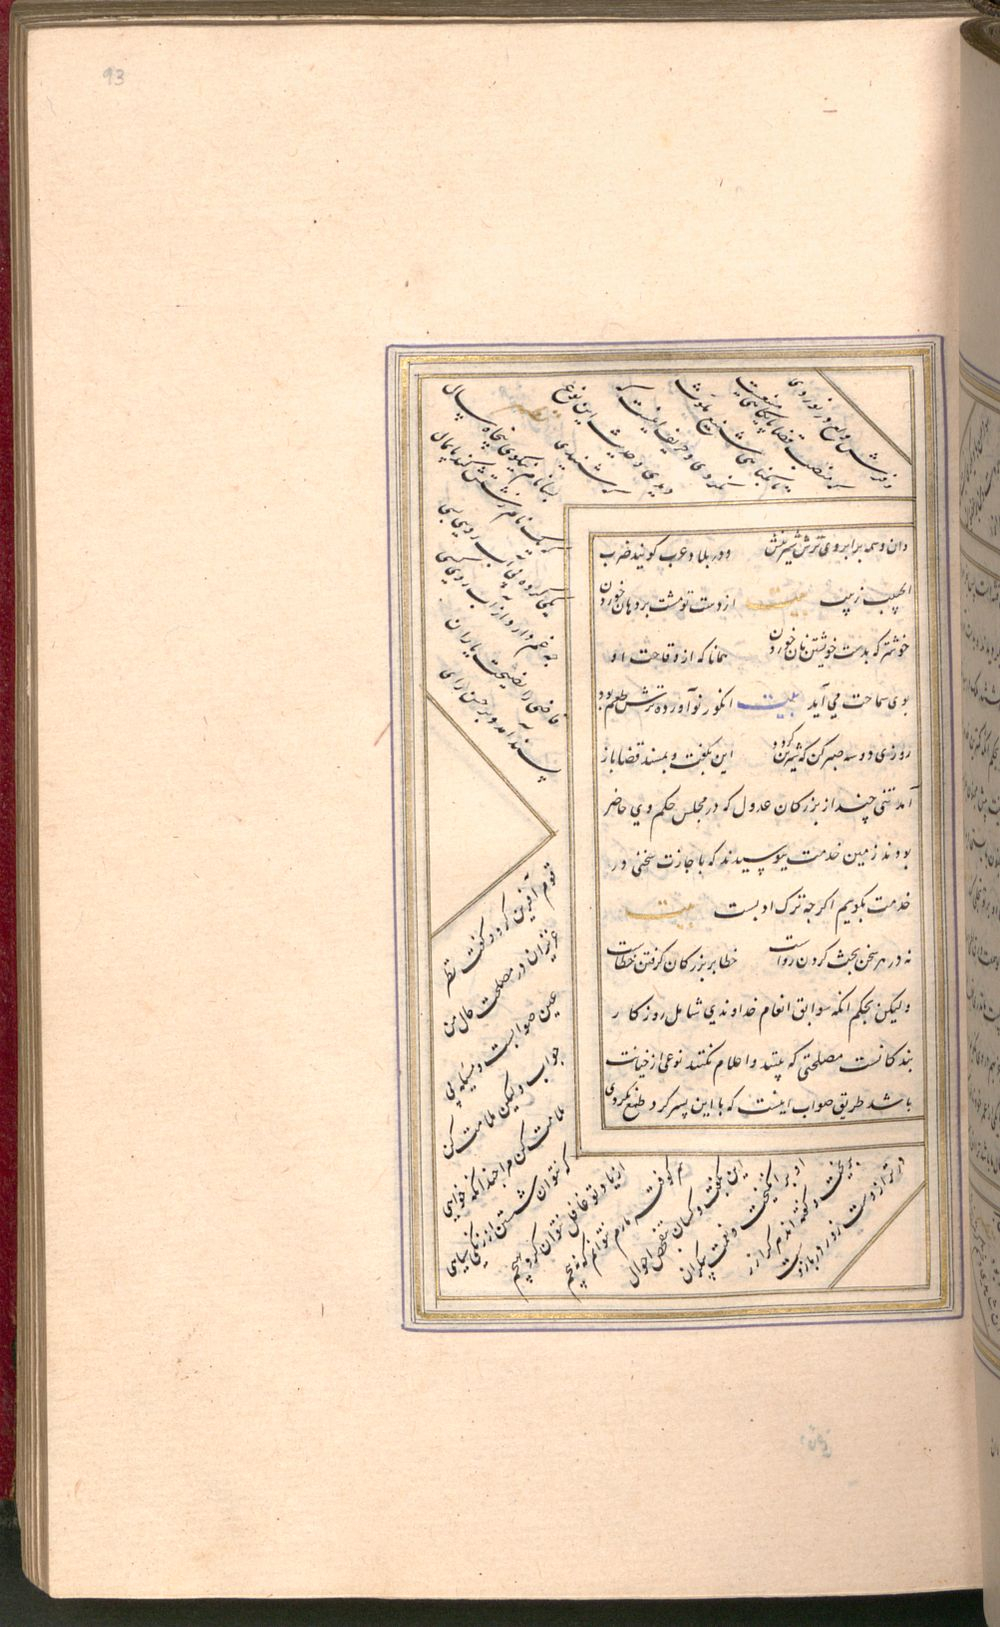 93
دان وسمه بر ابروی ترش شیرینش ودر بلاد عرب کویند ضرب
الحبیب زبیب بیت از دست تو مشت بر دهان خوردن
خوشتر که بدست خویشتن نان خوردن همانا که از وقاحت او
بوی سماحت می آید بیت انکور نوآورده ترش طعم بود
روزی دو سه صبر کن که شیرین کردد این بکفت و بمسند قضا باز
آمد تنی چند از بزرکان عدول که در مجلس حکم وی حاضر
بودند زمین خدمت ببوسیدند که باجازت سخنی در
خدمت بکوییم اکرچه ترک ادبست بیت
نه در هر سخن بحث کردن رواست خطا بر بزرکان کرفتن خطاست
ولیکن بحکم انکه سوابق انعام خداوندی شامل روزکار
بندکانست مصلحتی که بینند و اعلام نکنند نوعی از خیانت
باشد طریق صواب اینست که با این پسر کرد طمع نکردی
و فرش ولع در نوردی
که منصب قضا پایکاهی منیعست
تا بکناهی شنیع ملوث
نکردی و حریف اینست که
دیدی و حدیث این نوع
که شنیدی
بسا نام نیکوی پنجاه سال
که یک نام زشتش کند پایمال
یکی کرده بی آب رویی بسی
چه غم دارد از آب روی کسی
قاضی را نصیحت یاران
پسند آمد و بر حسن رای
قوم آفرین کرد و کفت نظر
عزیزان در مصلحت حال من
عین صوابست و مسئله بی
جواب ولیکن ملامت کن
ملامت کن مرا چندانکه خواهی
که نتوان شستن از زنکی سیاهی
از یاد تو غافل نتوان کرد بهیچم
سر کوفته مارم نتوانم که نپیچم
این بکفت و کسان بتفحص احوال
او برانکیخت و نعمت بیکران
بریخت و کفته اندم هر که را زر
در ترازوست زور در بازوست